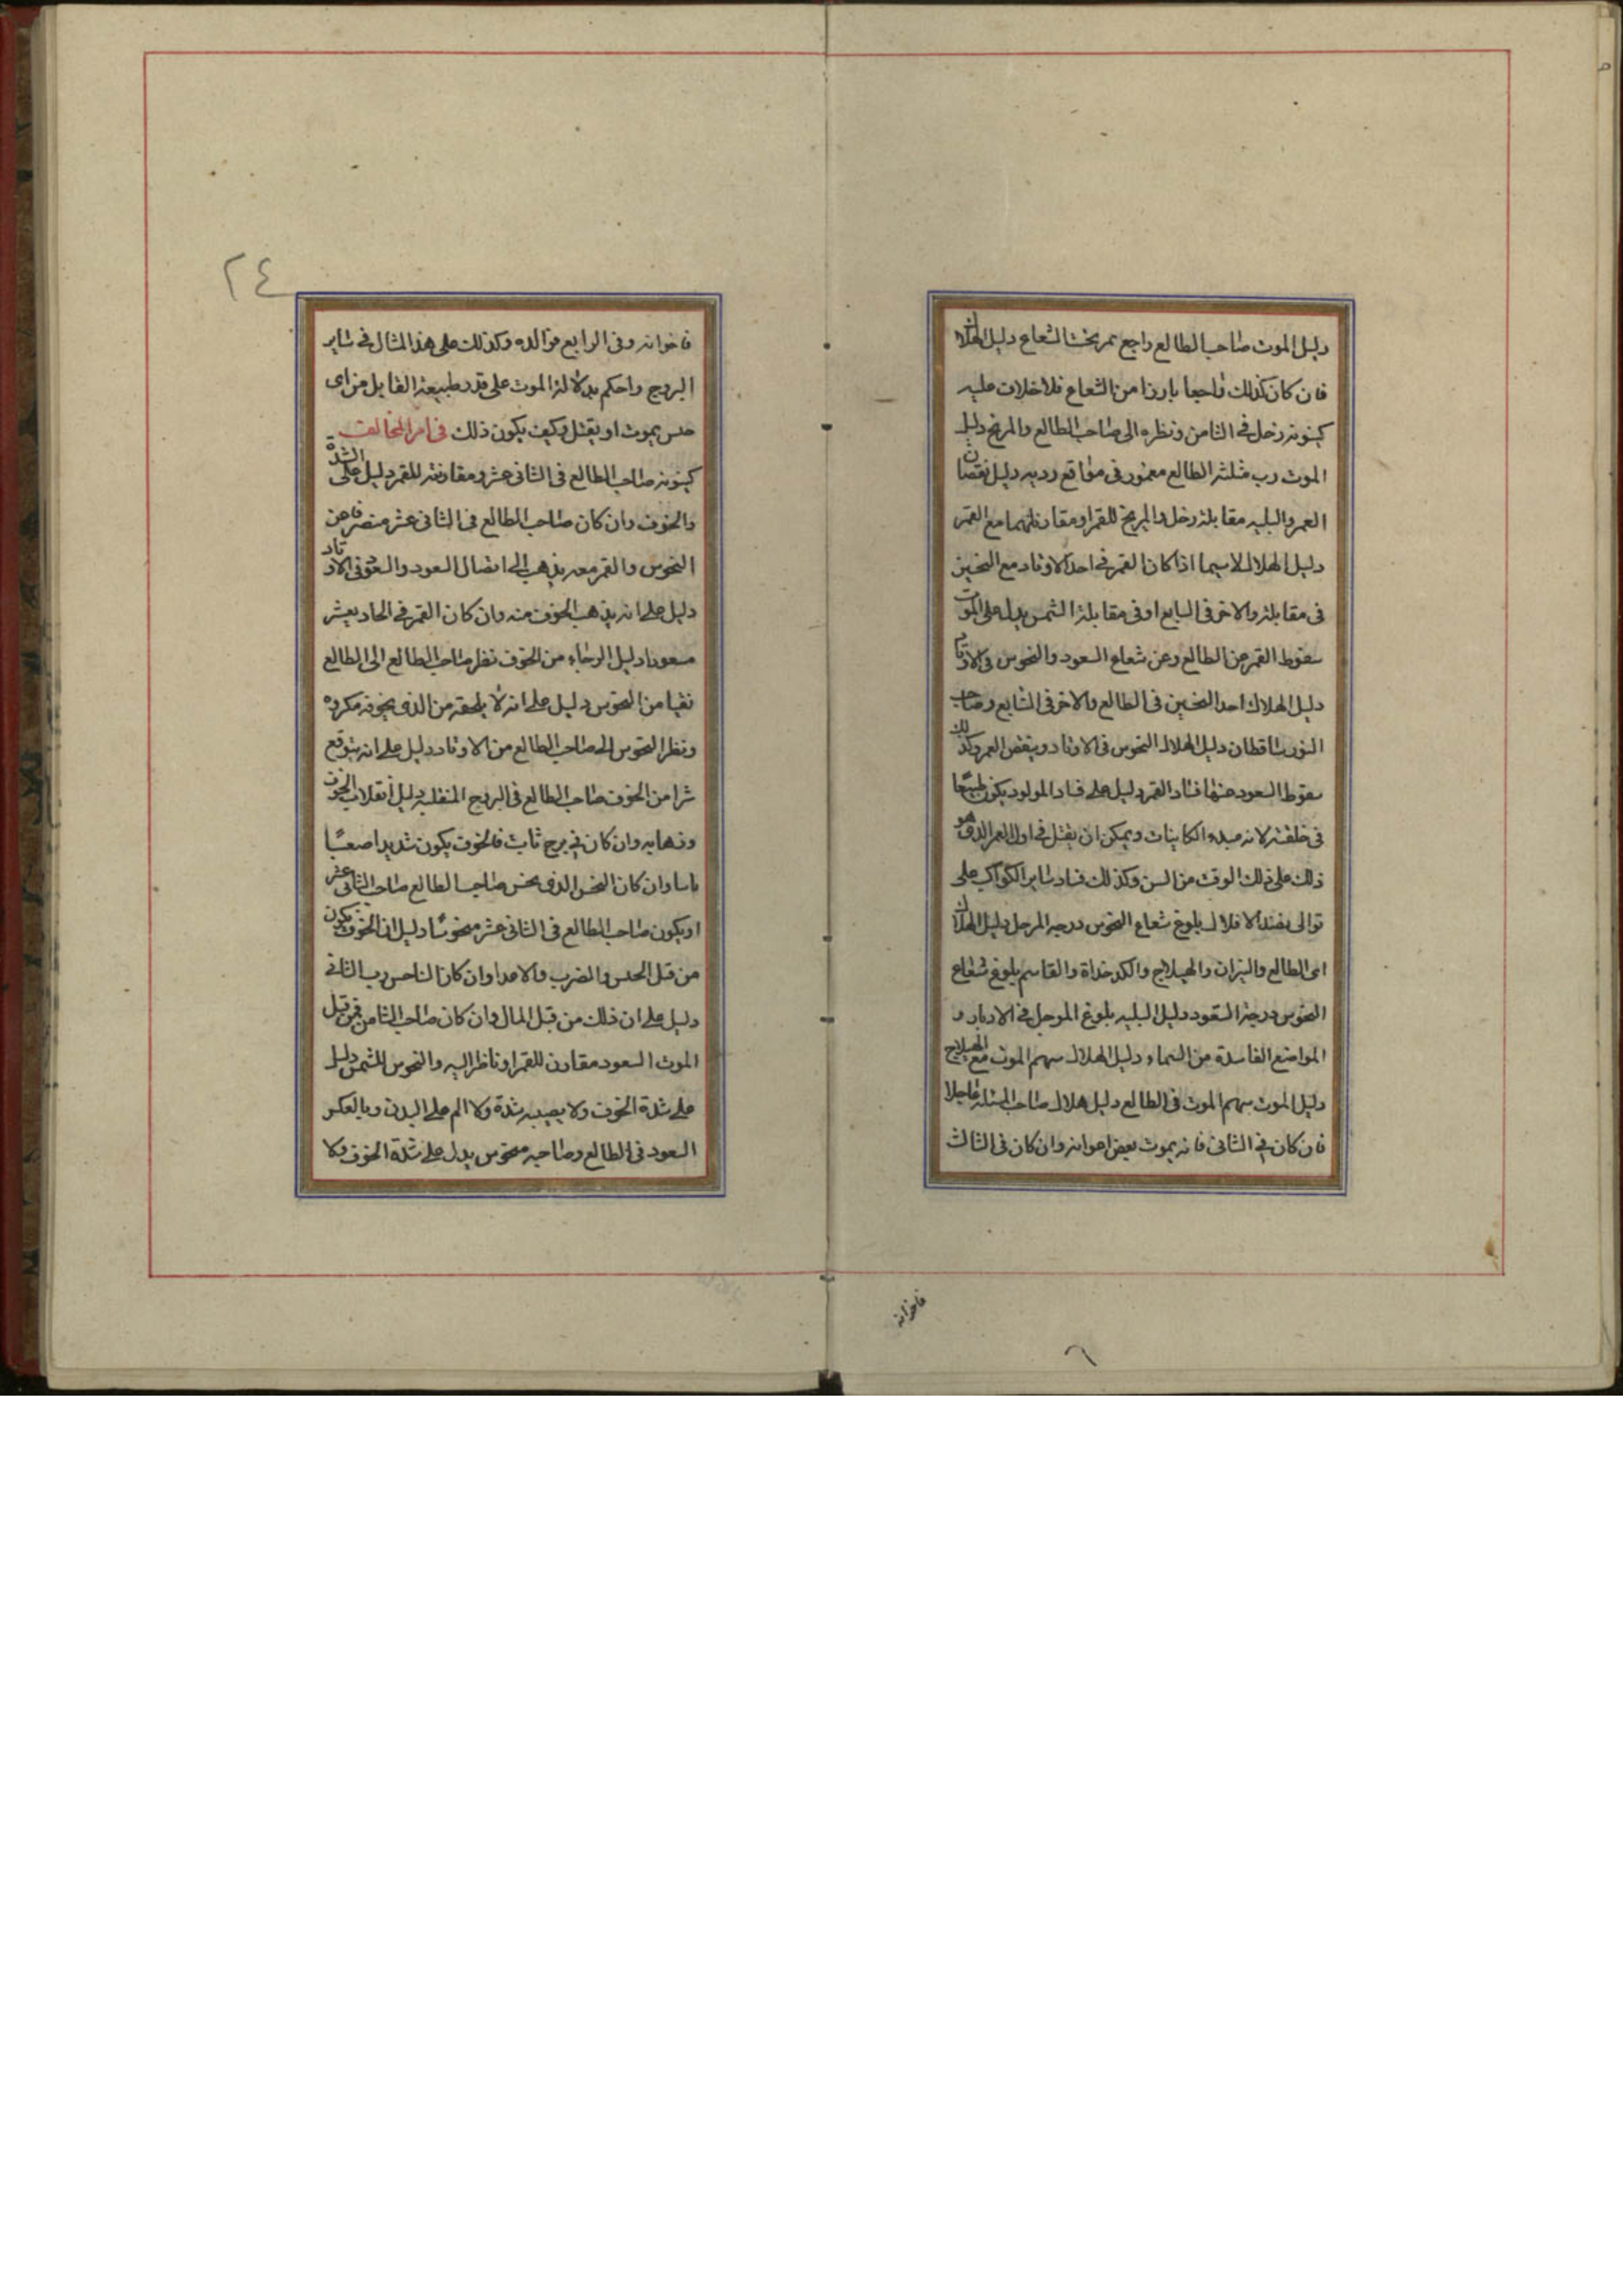 دليل الموت صاحب الطالع راجع تمر تحت الشعاع دليل الهلاك
فان كان كذلك راجعا بارزا من الشعاع فلا خلاف عليه
كينونة زحل في الثامن ونظره الى صاحب الطالع والمريخ دليل
الموت رب مثلثه الطالع مغمور في مواقع رديه دليل نقصان
العمر والبليه مقابلة زحل والمريخ للقمر او مقارنتهما مع القمر
دليل الهلاك لاسيما اذا كان القمر في احد الاوتاد مع النحسين
في مقابلة والاخر في السابع او في مقابلة الشمس يدل على الموت
سقوط القمر عن الطالع وعن شعاع السعود والنحوس في الاوتاد
دليل الهلاك احد النحسين في الطالع والاخر في السابع وصاحب
النور ساقطان دليل الهلاك النحوس في الاوتاد وينقص العمر وكذلك
سقوط السعود عنها فساد القمر دليل على فساد المولود يكون
في خلقته لانه مبدء الكاينات ويمكن ان يقتل في اول العمر الذي هو
ذلك على ذلك الوقت من السن وكذلك فساد ساير الكواكب على
توالى بلوغ شعاع النحوس درجة المرحل دليل الهلاك
اى الطالع والنيران والهيلاج والكدخداة والقاسم بلوغ شعاع
النحوس درجة السعود دليل البليه بلوغ الموحل في الادبار و
المواضع الفاسدة من السماء دليل الهلاك سهم الموت مع الهيلاج
دليل الموت سهم الموت في الطالع دليل هلاك صاحب المسئله عاجلا
فان كان في الثاني فانه يموت بعض اعوانه وان كان في الثالث
فاخوانه
٢٤
فاخوانه وفي الرابع فوالده وكذلك على هذا المثال في ساير
البروج واحكم بدلالة الموت على قدر طبيعة القابل من اى
جنس يموت او يقتل وكيف يكون ذلك في امر المخالف
كينونه صاحب الطالع في الثاني عشر ومقارنته للقمر دليل على الشدة
والخوف وان كان صاحب الطالع في الثاني عشر منصرفا عن
النحوس والقمر معه يذهب الى اتصال السعود والسعود في الاوتاد
دليل على انه يذهب الخوف عنه وان كان القمر في الحاد يعشر
مسعودا دليل الرخاء من الخوف نظر صاحب الطالع الى الطالع
نقيا من النحوس دليل على انه لا يلحقه من الذي يخوفه مكروه
ونظر النحوس الى صاحب الطالع من الاوتاد دليل على انه يتوقع
شرا من الخوف صاحب الطالع في البروج المنقلبه دليل انقلاب الخوف
وذهابه وان كان في برج ثابت فالخوف يكون شديدا صعبًا
باسا وان كان النحس الذي نحس صاحب الطالع صاحب الثاني عشر
او يكون صاحب الطالع في الثاني عشر منحوسًا دليل ان الخوف يكون
من قبل الحبس والضرب والاعدا وان كان الناحس رب الثاني
دليل على ان ذلك من قبل المال وان كان صاحب الثامن فمن قبل
الموت السعود مقارن للقمر او ناظر اليه والنحوس للشمس دليل
على شدة الخوف ولا يصيبه شدة ولا الم على البدن وبالعكس
السعود في الطالع وصاحبه منحوس يدل على شدة الخوف ولا